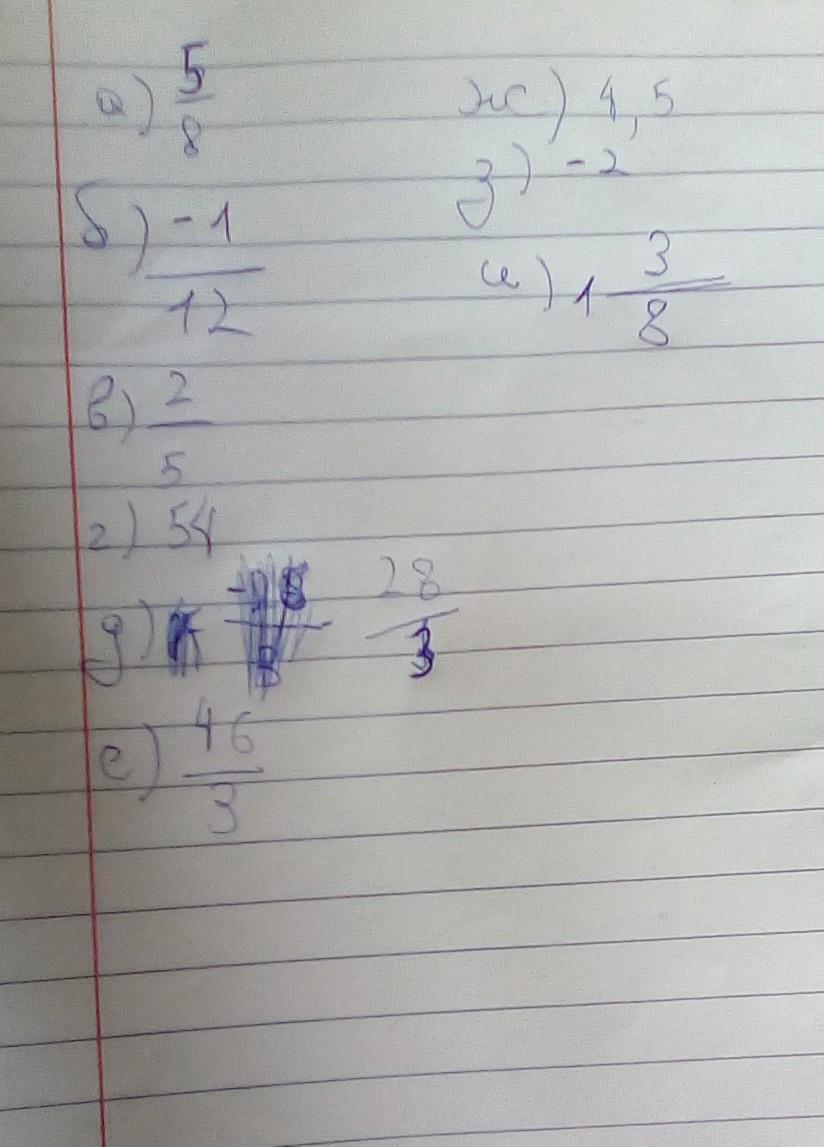 а) 5/8
б) -1/12
в) 2/5
г) 54
д) 28/3
е) 46/3
ж) 4,5
з) -2
и) 1 3/8